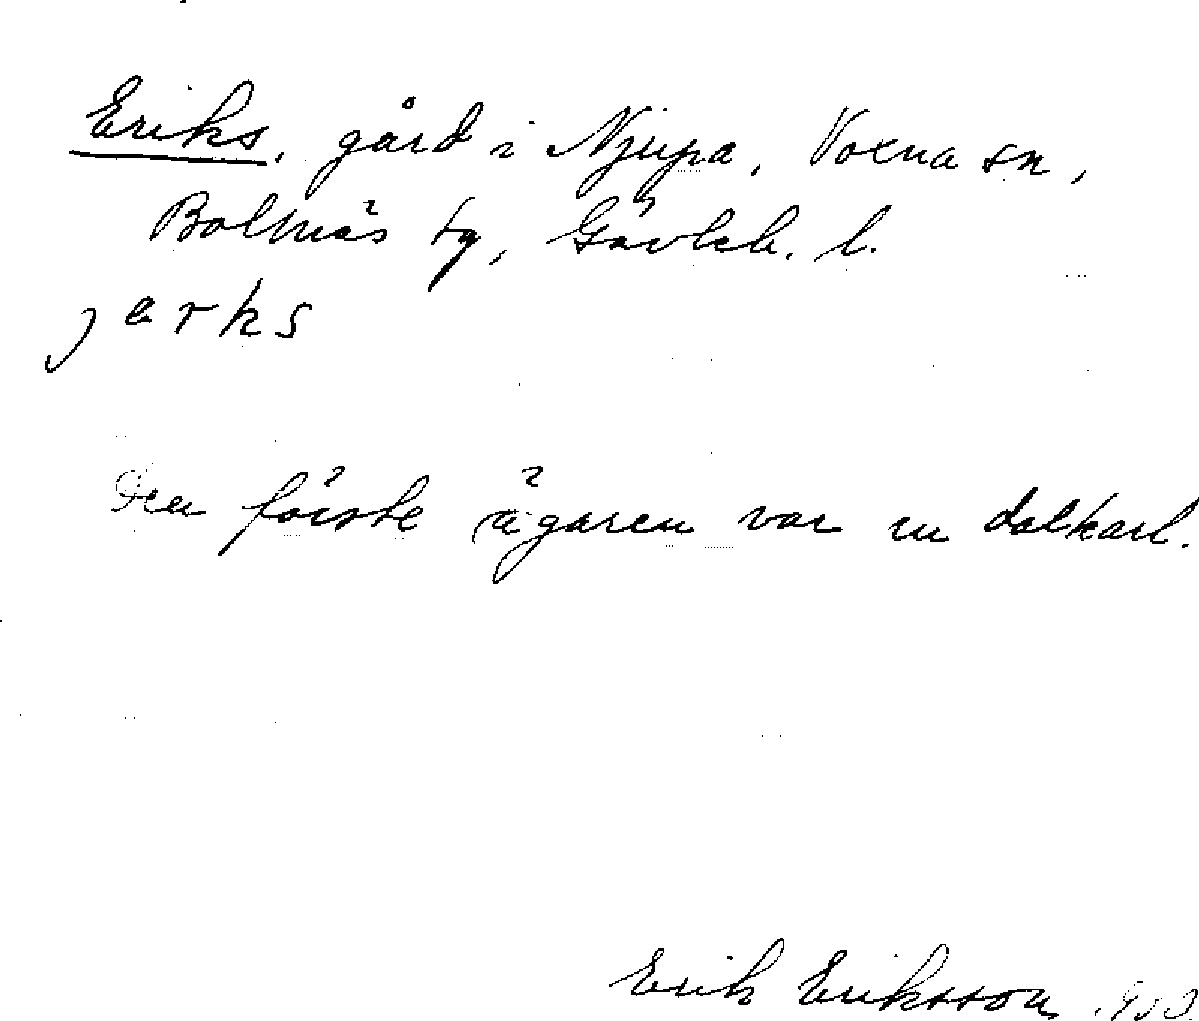 Eriks, gård i Njupa, Voxna sn,
Bollnäs tg, Gävleb. l.
jerks
Den förste ägaren var en dalkarl.
Erik Eriksson